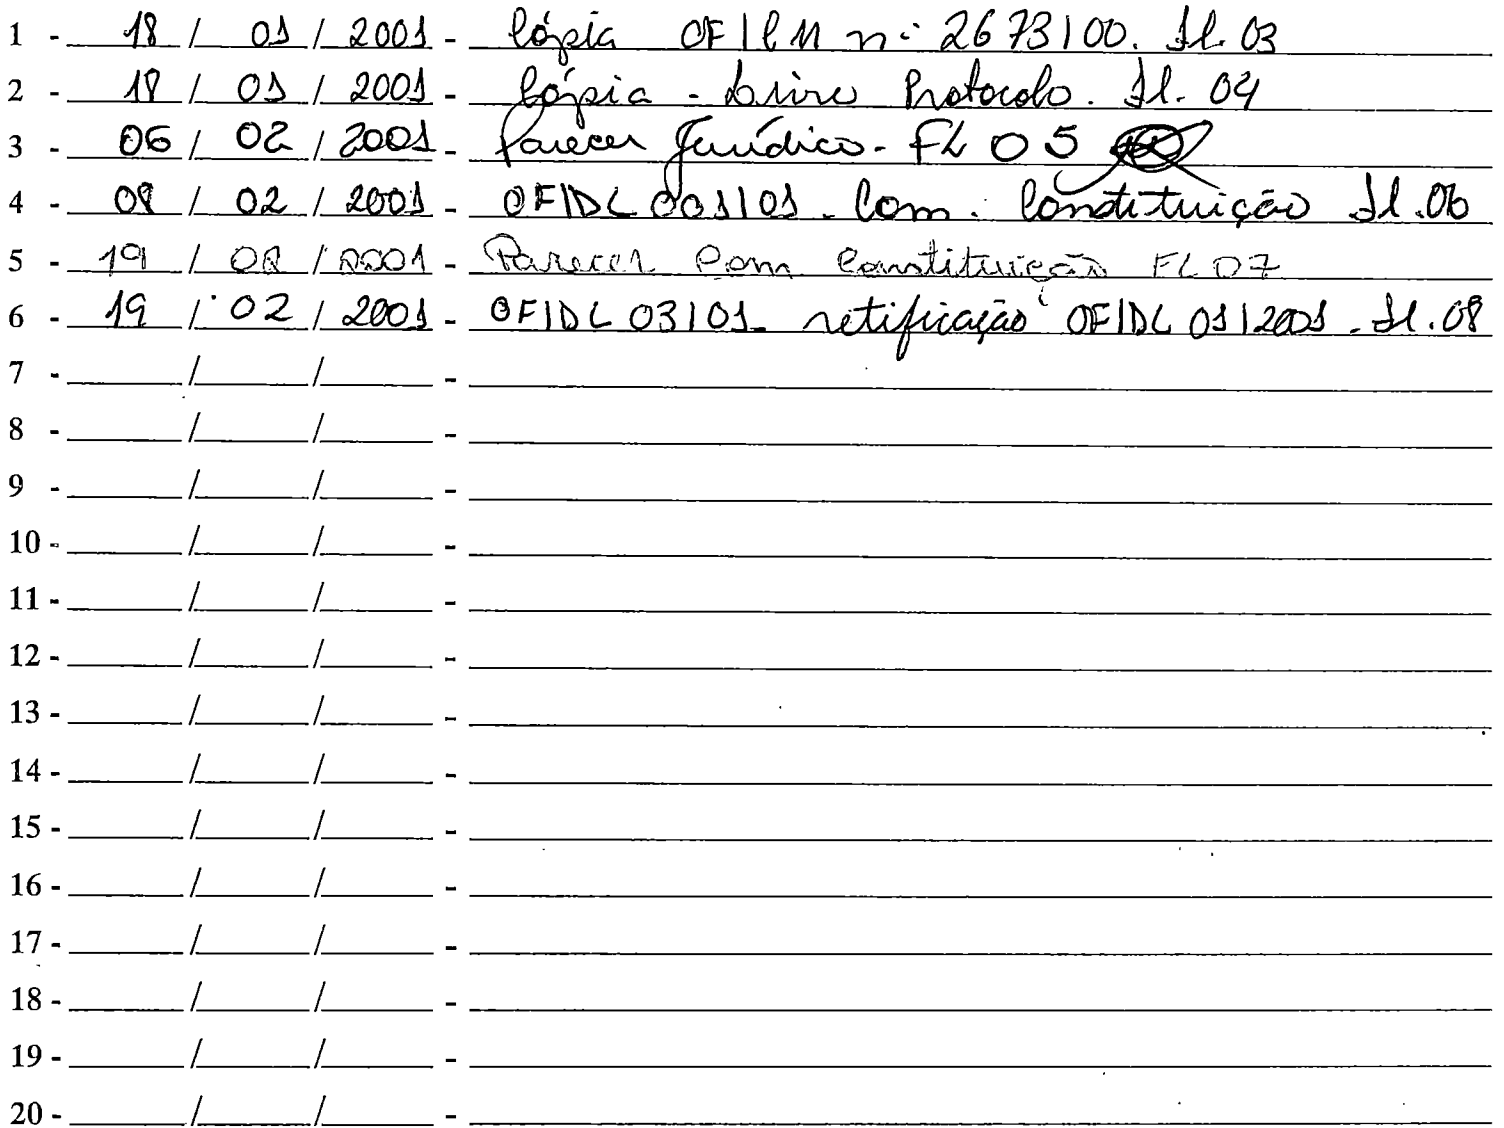 1 - 18 / 01 / 2001 - Cópia OF/CM nº 2673/00. Fl. 03
2 - 18 / 01 / 2001 - Cópia - Livro Protocolo. Fl. 04
3 - 06 / 02 / 2001 - Parecer Jurídico - FL 05
4 - 08 / 02 / 2001 - OF/DL 001/01 - Com. Constituição Fl. 06
5 - 19 / 02 / 2001 - Parecer Com Constituição FL 07
6 - 19 / 02 / 2001 - OF/DL 03/01 - retificação OF/DL 01/2001 - Fl. 08
7 - ____/____/____ -
8 - ____/____/____ -
9 - ____/____/____ -
10 - ____/____/____ -
11 - ____/____/____ -
12 - ____/____/____ -
13 - ____/____/____ -
14 - ____/____/____ -
15 - ____/____/____ -
16 - ____/____/____ -
17 - ____/____/____ -
18 - ____/____/____ -
19 - ____/____/____ -
20 - ____/____/____ -